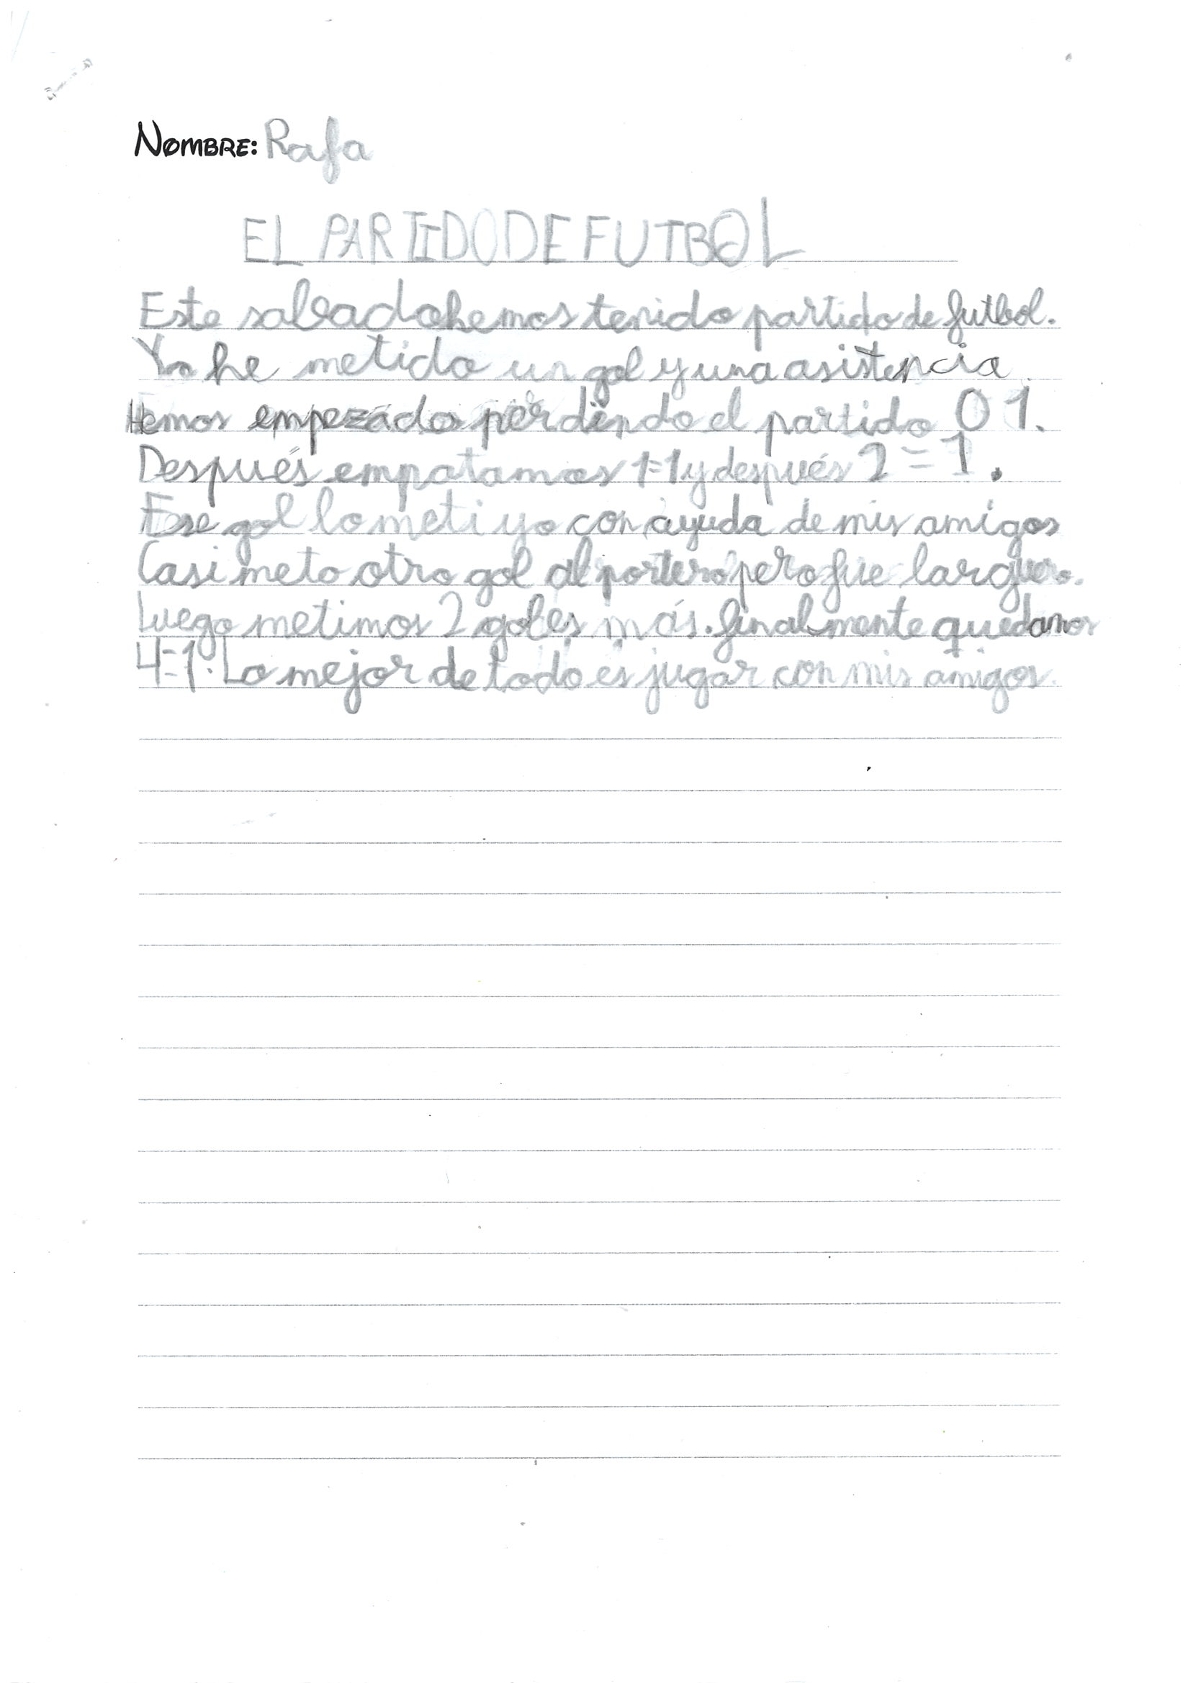 NOMBRE: Rafa
EL PARTIDO DE FUTBOL
Este salvado hemos tenido partido de futbol.
Yo he metido un gol y una asistencia
Hemos empezado perdiendo el partido 0 1.
Después empatamos 1-1 y después 2 = 1.
Ese gol lo meti yo con ayuda de mis amigos
Casi meto otro gol al portero pero fue larguero.
Luego metimos 2 goles más. finalmente quedamos
4-1. Lo mejor de todo es jugar con mis amigos.